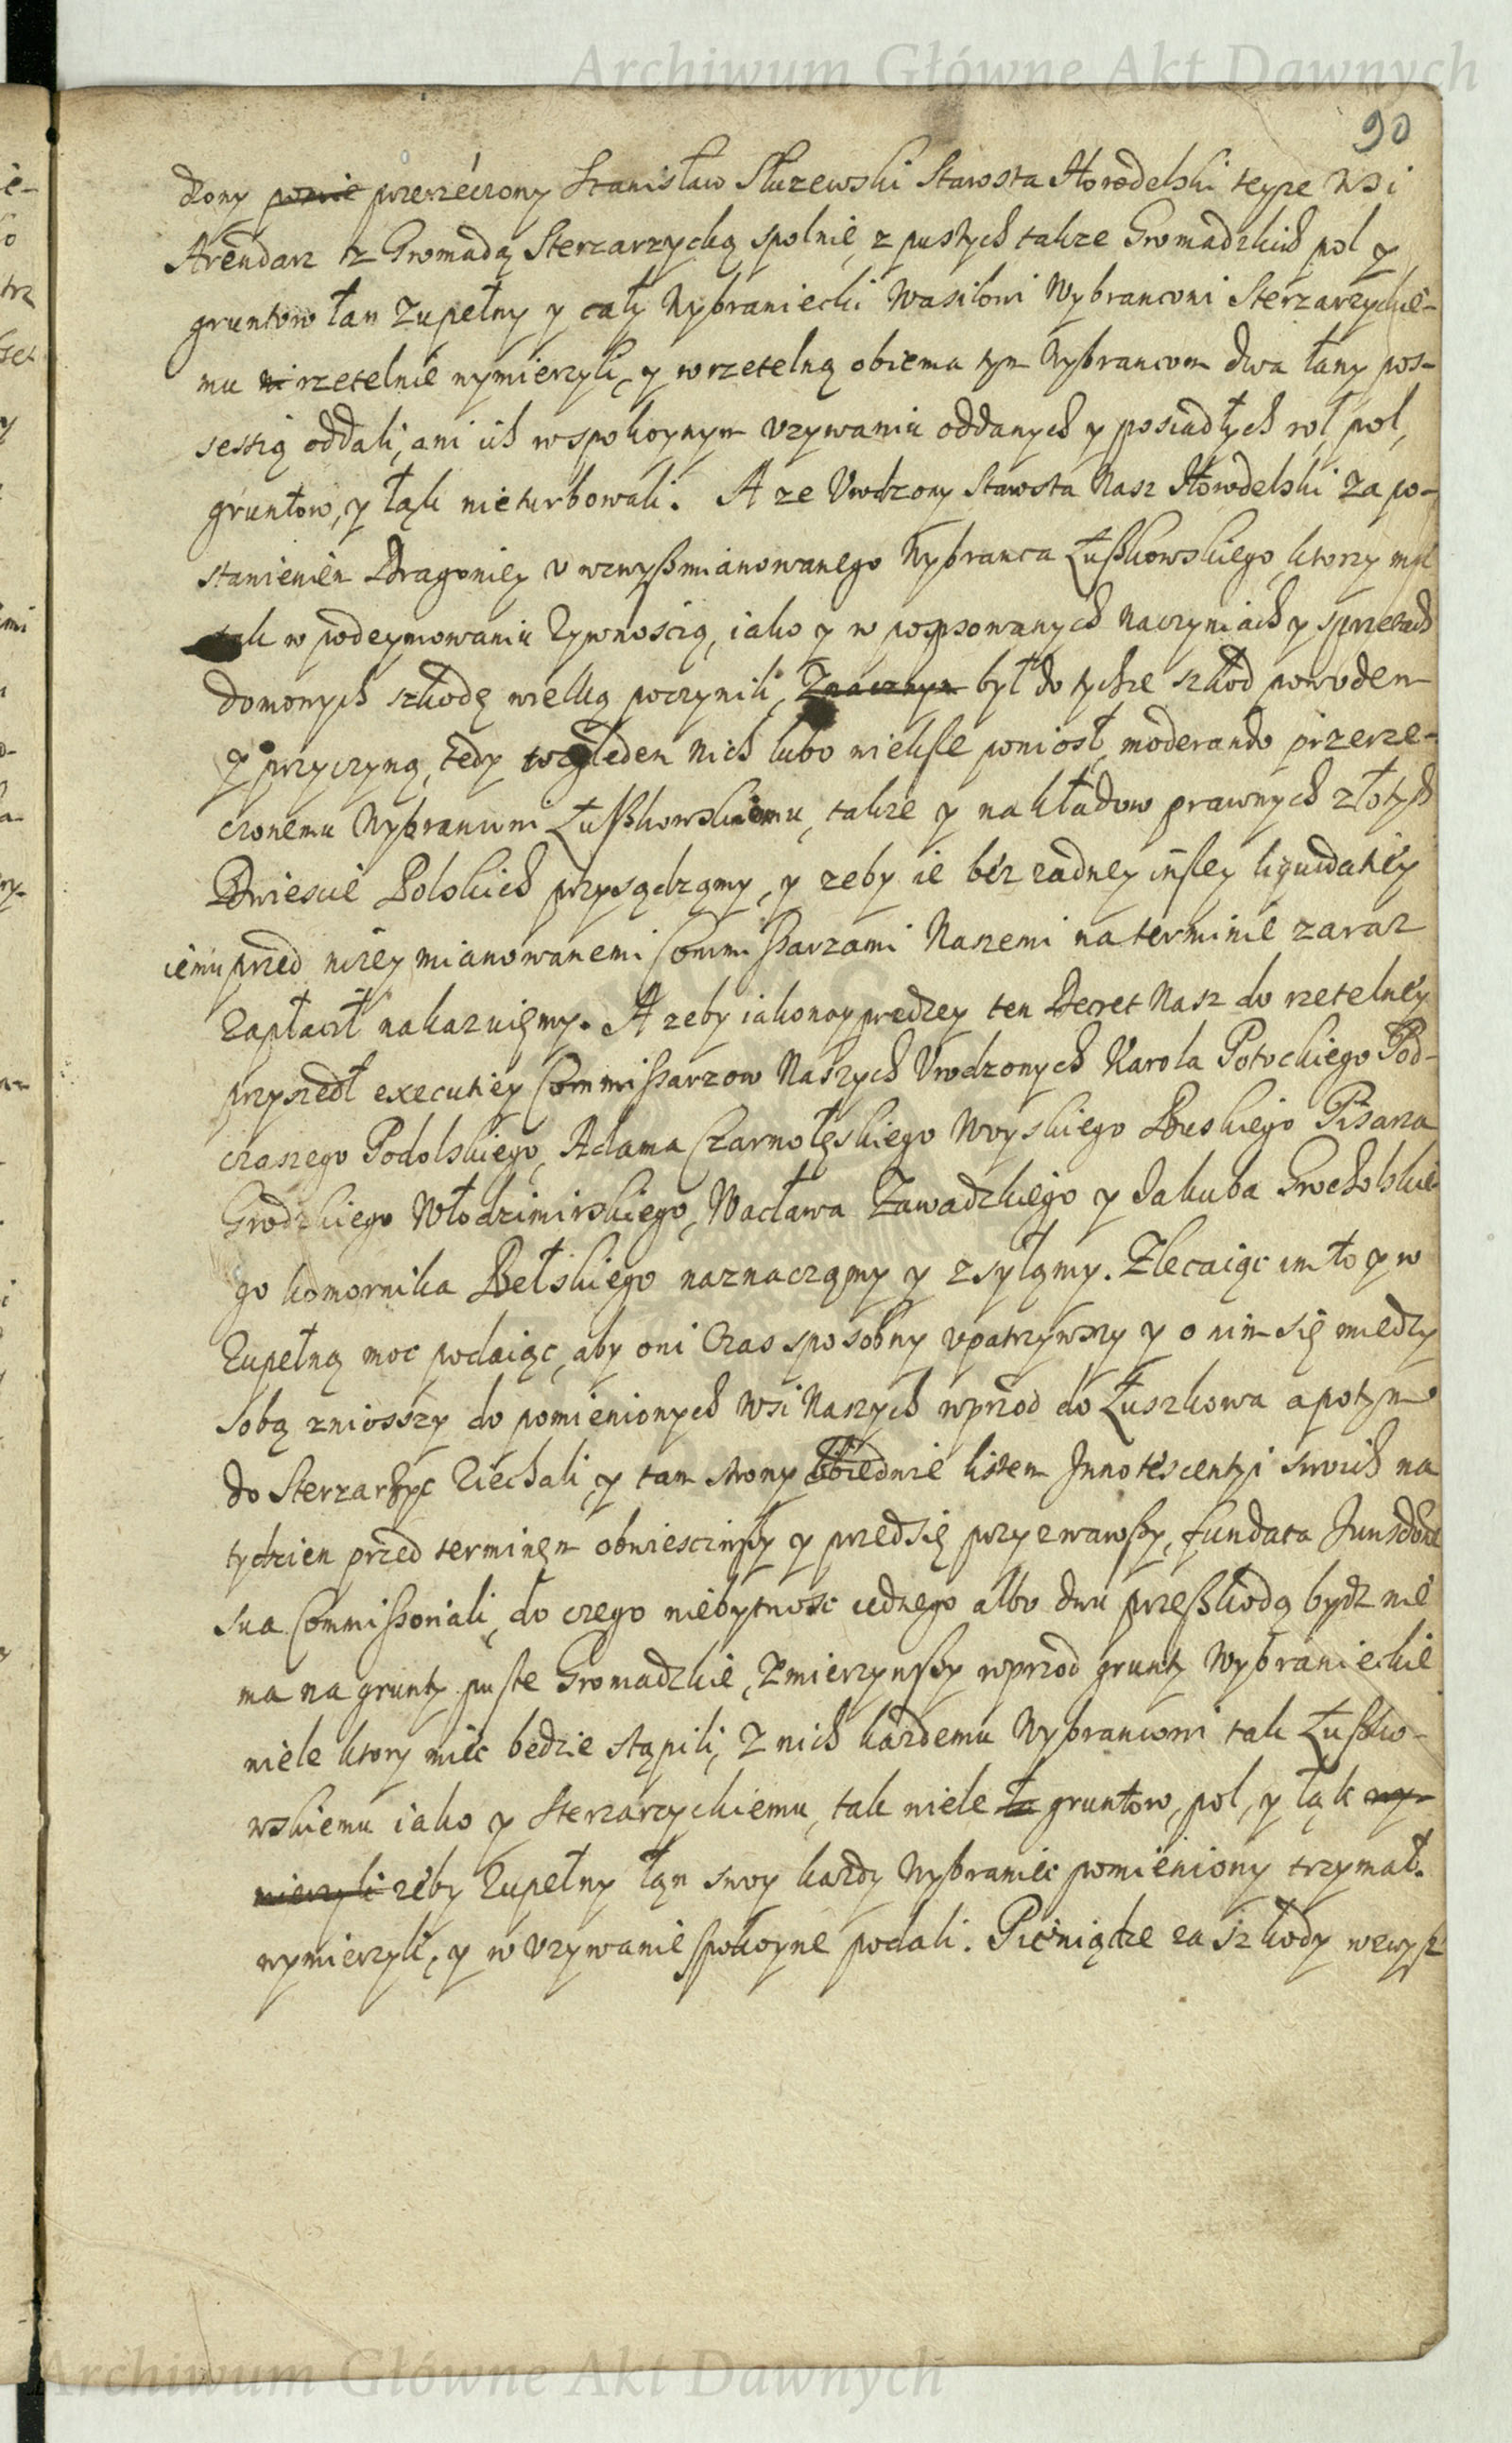 Archiwum Główne Akt Dawnych
90
dzony pomie przerzeczony Stanisław Służewski Starosta Horodelski teyze Wsi
Arendarz z Gromadą Sterzarzycką spolnie, z pustych takze Gromadzkich pol y
gruntow łan zupełny y cały Wybraniecki Wasilowi Wybrancowi Sterzarzyckie-
mu rzetelnie wymierzyli, y w rzetelną obiema tym Wybrancom dwa łany pos-
sessią oddali, ani ich w spokoynym vzywaniu oddanych y posiadłych rol, pol,
gruntow, y łąk nieturbowali. A ze Vrodzony Starosta Nasz Horodelski za po-
stanieniem Dragoniey v wzwyßmianowanego Wybranca Łußkowskiego, ktorzy mu
tak w podeymowaniu zywnoscią, iako y w popsowanych naczyniach y sprzetach
domowych szkodę wielką poczynili, Znacznym był do tychze szkod powodem
y przyczyną, tedy względem nich lubo wieksze poniosł, moderando przerze-
czonemu Wybrancowi Łußkowskiemu, takze y nakładow prawnych złotych
Dwiescie Polskich przysądzamy, y zeby ie bez zadney inszey liquidatiey
iemu przed nizey mianowanemi Commißarzami Naszemi na terminie zaraz
zapłacił nakazuięmy. A zeby iakonayprędzey ten Decret Nasz do rzetelney
przyszedł executiey Commißarzow Naszych Vrodzonych Karola Potockiego Pod-
czaszego Podolskiego, Adama Czarnołęskiego Woyskiego Buskiego Pisarza
Grodzkiego Włodzimirskiego, Wacława Zawadzkiego y Jakuba Grocholskie-
go komornika Bełskiego naznaczamy y zsyłamy. Zlecaiąc im to y w
zupełną moc podaiąc, aby oni czas sposobny vpatrzywszy y o nim się miedzy
sobą zniosszy do pomienionych Wsi Naszych wprzod do Łuszkowa a potym
do Sterzarzyc ziechali, y tam strony obiedwie listem Innotescentyi swoich na
tydzien przed terminem obwiesciwßy y przed się przyzwawßy, fundata Jurisdone
sua Commißoriali, do czego niebytnosc iednego albo dwu przeßkodą bydz nie
ma na grunty puste Gromadzkie, zmierzywßy wprzod grunty Wybranieckie
wiele ktory miec bedzie stąpili, z nich kazdemu Wybrancowi tak Łußko-
wskiemu iako y Sterzarzyckiemu, tak wiele ła gruntow, pol, y łąk wy-
mierzyli zeby zupełny łan swoy kazdy Wybraniec pomieniony trzymał.
wymierzyli, y w vzywanie spokoyne podali. Pieniądze za szkody wzwyß
Archiwum Główne Akt Dawnych